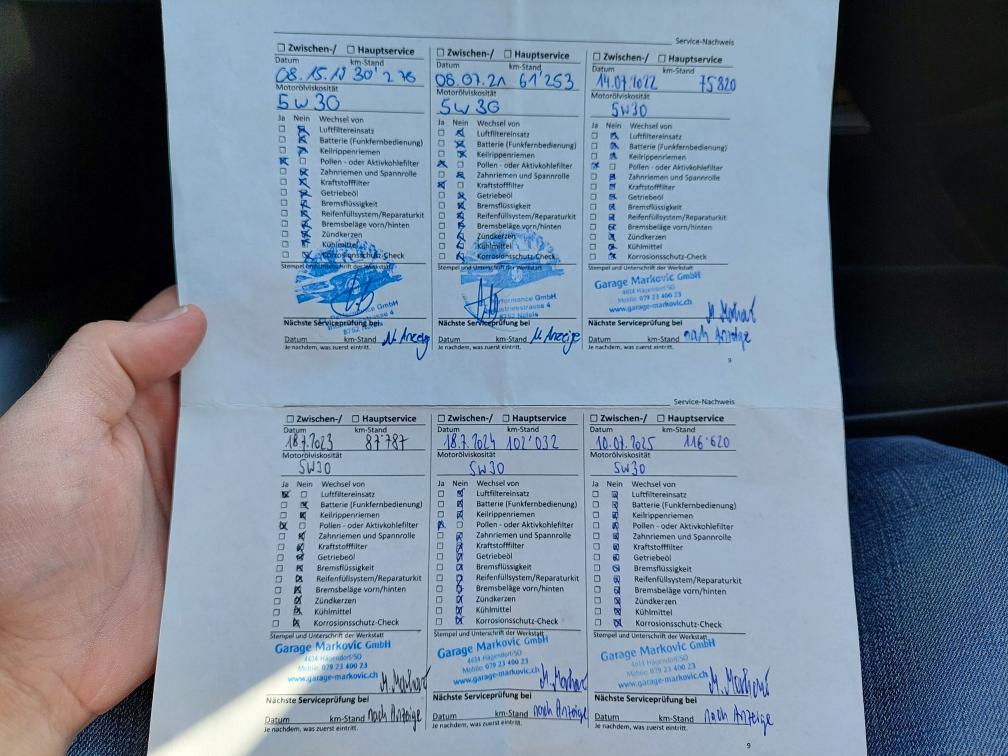 Service-Nachweis
☐ Zwischen-/ ☐ Hauptservice
Datum km-Stand
30'276
Motorölviskosität
5W30
Ja Nein Wechsel von
Luftfiltereinsatz
Batterie (Funkfernbedienung)
Keilrippenriemen
Pollen - oder Aktivkohlefilter
Zahnriemen und Spannrolle
Kraftstofffilter
Getriebeöl
Bremsflüssigkeit
Reifenfüllsystem/Reparaturkit
Bremsbeläge vorn/hinten
Zündkerzen
Kühlmittel
Korrosionsschutz-Check
Stempel und Unterschrift der Werkstatt
GmbH
Nächste Serviceprüfung bei
Datum km-Stand n. Anzeige
Je nachdem, was zuerst eintritt.
☐ Zwischen-/ ☐ Hauptservice
Datum km-Stand
06.07.21 61'253
Motorölviskosität
5W30
Ja Nein Wechsel von
Luftfiltereinsatz
Batterie (Funkfernbedienung)
Keilrippenriemen
Pollen - oder Aktivkohlefilter
Zahnriemen und Spannrolle
Kraftstofffilter
Getriebeöl
Bremsflüssigkeit
Reifenfüllsystem/Reparaturkit
Bremsbeläge vorn/hinten
Zündkerzen
Kühlmittel
Korrosionsschutz-Check
Stempel und Unterschrift der Werkstatt
GmbH
Nächste Serviceprüfung bei
Datum km-Stand n. Anzeige
Je nachdem, was zuerst eintritt.
☐ Zwischen-/ ☐ Hauptservice
Datum km-Stand
14.07.2022 75820
Motorölviskosität
5W30
Ja Nein Wechsel von
Luftfiltereinsatz
Batterie (Funkfernbedienung)
Keilrippenriemen
Pollen - oder Aktivkohlefilter
Zahnriemen und Spannrolle
Kraftstofffilter
Getriebeöl
Bremsflüssigkeit
Reifenfüllsystem/Reparaturkit
Bremsbeläge vorn/hinten
Zündkerzen
Kühlmittel
Korrosionsschutz-Check
Stempel und Unterschrift der Werkstatt
Garage Markovic GmbH
4614 Hägendorf/SO
Mobile: 079 23 400 23
www.garage-markovic.ch
Nächste Serviceprüfung bei
Datum km-Stand nach Anzeige
Je nachdem, was zuerst eintritt.
9
Service-Nachweis
☐ Zwischen-/ ☐ Hauptservice
Datum km-Stand
18.7.2023 87'787
Motorölviskosität
5W30
Ja Nein Wechsel von
Luftfiltereinsatz
Batterie (Funkfernbedienung)
Keilrippenriemen
Pollen - oder Aktivkohlefilter
Zahnriemen und Spannrolle
Kraftstofffilter
Getriebeöl
Bremsflüssigkeit
Reifenfüllsystem/Reparaturkit
Bremsbeläge vorn/hinten
Zündkerzen
Kühlmittel
Korrosionsschutz-Check
Stempel und Unterschrift der Werkstatt
Garage Markovic GmbH
4614 Hägendorf/SO
Mobile: 079 23 400 23
www.garage-markovic.ch
Nächste Serviceprüfung bei
Datum km-Stand nach Anzeige
Je nachdem, was zuerst eintritt.
☐ Zwischen-/ ☐ Hauptservice
Datum km-Stand
18.7.2024 102'032
Motorölviskosität
5W30
Ja Nein Wechsel von
Luftfiltereinsatz
Batterie (Funkfernbedienung)
Keilrippenriemen
Pollen - oder Aktivkohlefilter
Zahnriemen und Spannrolle
Kraftstofffilter
Getriebeöl
Bremsflüssigkeit
Reifenfüllsystem/Reparaturkit
Bremsbeläge vorn/hinten
Zündkerzen
Kühlmittel
Korrosionsschutz-Check
Stempel und Unterschrift der Werkstatt
Garage Markovic GmbH
4614 Hägendorf/SO
Mobile: 079 23 400 23
www.garage-markovic.ch
Nächste Serviceprüfung bei
Datum km-Stand nach Anzeige
Je nachdem, was zuerst eintritt.
☐ Zwischen-/ ☐ Hauptservice
Datum km-Stand
10.07.2025 116'620
Motorölviskosität
5W30
Ja Nein Wechsel von
Luftfiltereinsatz
Batterie (Funkfernbedienung)
Keilrippenriemen
Pollen - oder Aktivkohlefilter
Zahnriemen und Spannrolle
Kraftstofffilter
Getriebeöl
Bremsflüssigkeit
Reifenfüllsystem/Reparaturkit
Bremsbeläge vorn/hinten
Zündkerzen
Kühlmittel
Korrosionsschutz-Check
Stempel und Unterschrift der Werkstatt
Garage Markovic GmbH
4614 Hägendorf/SO
Mobile: 079 23 400 23
www.garage-markovic.ch
Nächste Serviceprüfung bei
Datum km-Stand nach Anzeige
Je nachdem, was zuerst eintritt.
9